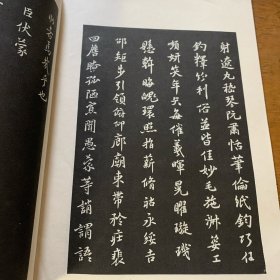 射遼丸嵇琴阮蕭恬筆倫紙鈞巧任
釣釋紛利俗並皆佳妙毛施淑姿工
嚬妍笑年矢每催羲暉晃曜璇璣
懸斡晦魄環照指薪脩祜永綏吉
邵矩步引領俯仰廊廟束帶矜莊裴
回瞻眺孤陋寡聞愚蒙等誚謂語
助者焉哉乎也
臣伏蒙